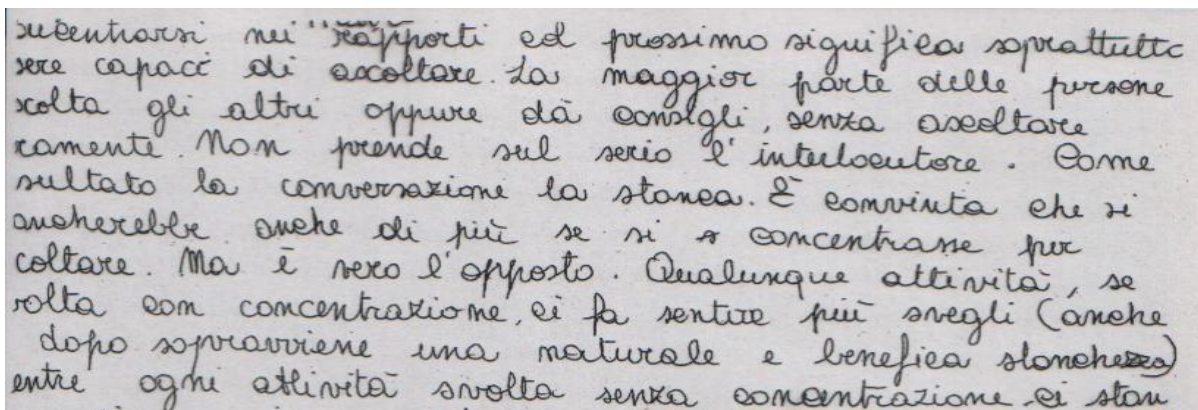 ncentrarsi nei rapporti col prossimo significa soprattutto
sere capace di ascoltare. La maggior parte delle persone
scolta gli altri oppure dà consigli, senza ascoltare
ramente. Non prende sul serio l'interlocutore. Come
sultato la conversazione la stanca. È convinta che si
ancherebbe anche di più se si concentrasse per
coltare. Ma è vero l'opposto. Qualunque attività, se
volta con concentrazione, ci fa sentire più svegli (anche
dopo sopravviene una naturale e benefica stanchezza)
entre ogni attività svolta senza concentrazione ci stan